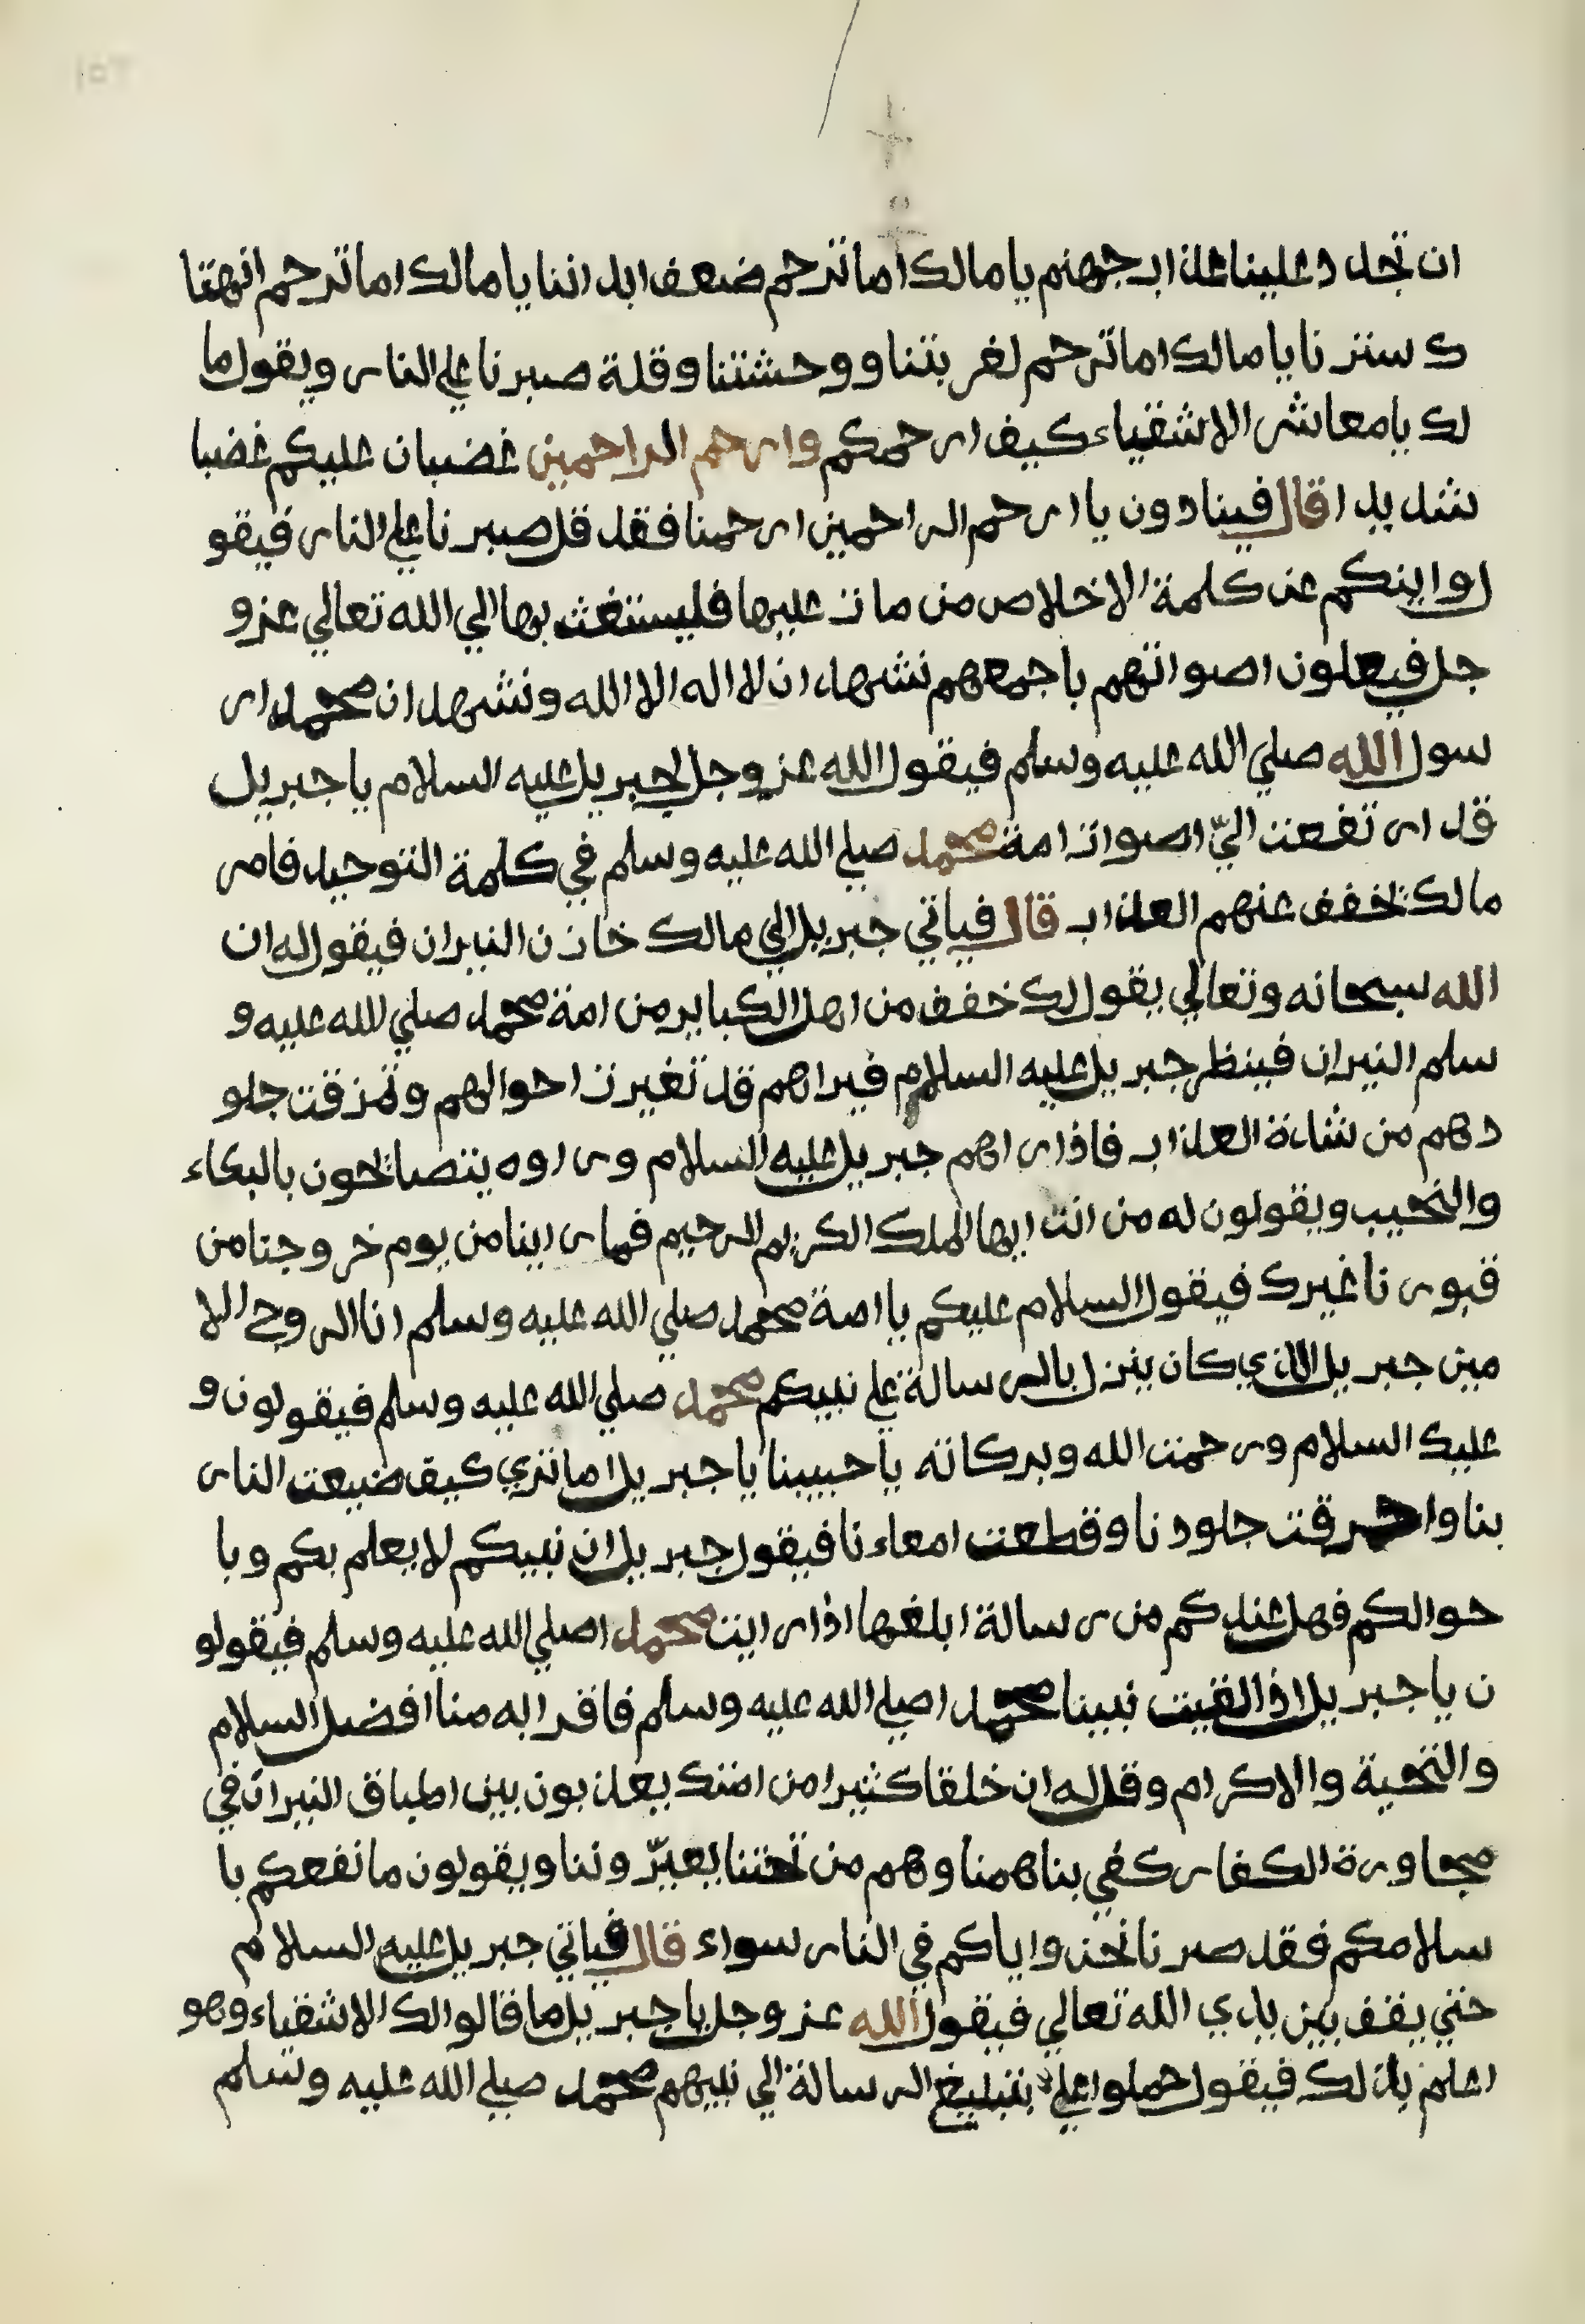 ان تجدد علينا عذاب جهنم يا مالك اما ترحم ضعف ابداننا يا مالك اما ترحم انهتا
ك سترنا يا مالك اما ترحم لغربتنا ووحشتنا وقلة صبرنا علي النار ويقول ما
لك يا معاشر الاشقياء كيف ارحمكم وارحم الراحمين غضبان عليكم غضبا
شديدا قال فينادون يا ارحم الراحمين ارحمنا فقد قل صبرنا علي النار فيقو
ل واينكم عن كلمة الاخلاص من مات عليها فليستغث بها الي الله تعالي عز و
جل فيعلون اصواتهم باجمعهم نشهد ان لا اله الا الله ونشهد ان محمدا ر
سول الله صلي الله عليه وسلم فيقول الله عز وجل لجبريل عليه السلام يا جبريل
قد ارتفعت اليّ اصوات امة محمد صلي الله عليه وسلم في كلمة التوحيد فامر
مالك يخفف عنهم العذاب قال فياتي جبريل الي مالك خازن النيران فيقول له ان
الله سبحانه وتعالي يقول لك خفف من اهل الكباير من امة محمد صلي الله عليه و
سلم النيران فينظر جبريل عليه السلام فيراهم قد تغيرت احوالهم وتمزقت جلو
دهم من شدة العذاب فاذا راهم جبريل عليه السلام وراوه يتصايحون بالبكاء
والنحيب ويقولون له من انت ايها الملك الكريم الرحيم فما راينا من يوم خروجنا من
قبورنا غيرك فيقول السلام عليكم يا امة محمد صلي الله عليه وسلم انا الروح الا
مين جبريل الذي كان ينزل بالرسالة علي نبيكم محمد صلي الله عليه وسلم فيقولون و
عليك السلام ورحمت الله وبركاته يا حبيبنا يا جبريل اما تري كيف ضيعت النار
بنا واحرقت جلودنا وقطعت امعاءنا فيقول جبريل ان نبيكم لا يعلم بكم وبا
حوالكم فهل عندكم من رسالة ابلغها اذا رايت محمدا صلي الله عليه وسلم فيقولو
ن يا جبريل اذا لقيت نبينا محمدا صلي الله عليه وسلم فاقراه منا افضل السلام
والتحية والاكرام وقل له ان خلقا كثيرا من امتك يعذبون بين اطباق النيران في
مجاورة الكفار كفي بنا همنا وهم من تحتنا يعيّروننا ويقولون ما نفعكم با
سلامكم فقد صرنا نحن واياكم في النار سواء قال فياتي جبريل عليه السلام
حتي يقف بين يدي الله تعالي فيقول الله عز وجل يا جبريل ما قالوا لك الاشقياء وهو
اعلم بذلك فيقول حملوا علي بتبليغ الرسالة الي نبيهم محمد صلي الله عليه وسلم